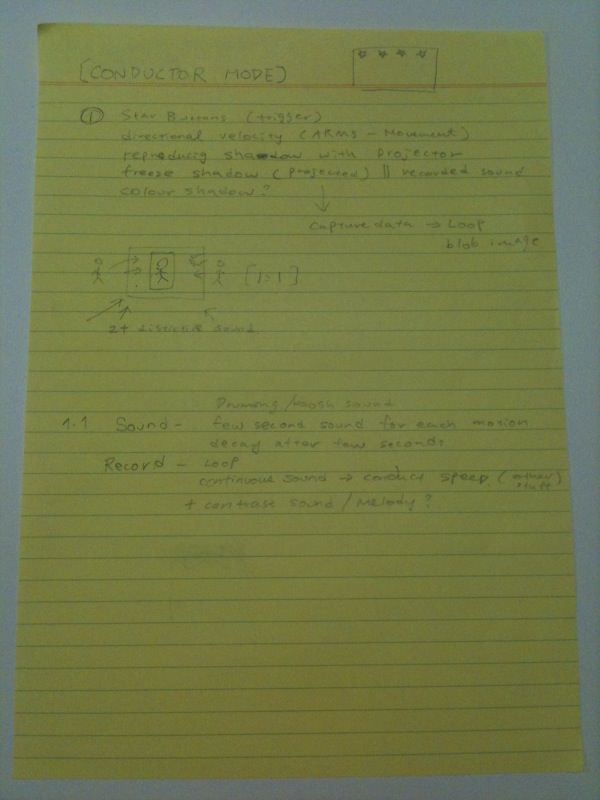 [CONDUCTOR MODE]
① Star Buttons (trigger)
directional velocity (ARMS - Movement)
reproducig shadow with Projector
freeze shadow (projected) || recorded sound
colour shadow?
capture data → Loop
blob image
[1:1]
2+ distictive sound
Drumming / woosh sound
1.1 Sound - few second sound for each motion
decay after few seconds
Record - Loop
continuous sound → conduct speed (other stuff)
+ contrase sound / Melody?